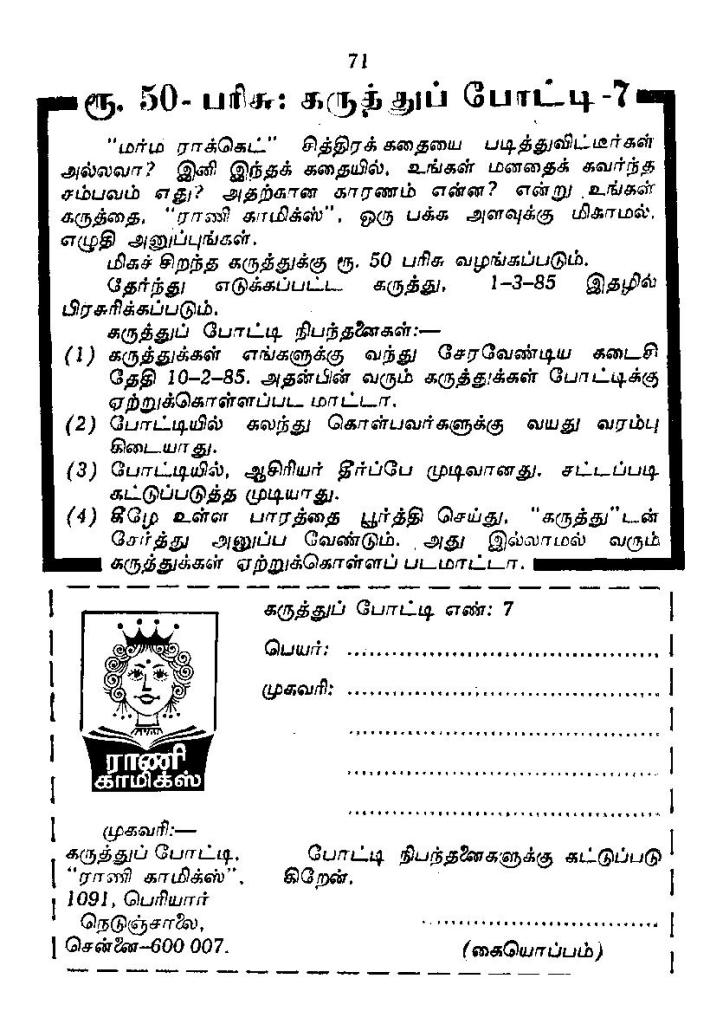 71
ரூ. 50- பரிசு: கருத்துப் போட்டி -7
"மர்ம ராக்கெட்" சித்திரக் கதையை படித்துவிட்டீர்கள்
அல்லவா? இனி இந்தக் கதையில், உங்கள் மனதைக் கவர்ந்த
சம்பவம் எது? அதற்கான காரணம் என்ன? என்று உங்கள்
கருத்தை, "ராணி காமிக்ஸ்", ஒரு பக்க அளவுக்கு மிகாமல்,
எழுதி அனுப்புங்கள்.
மிகச் சிறந்த கருத்துக்கு ரூ. 50 பரிசு வழங்கப்படும்.
தேர்ந்து எடுக்கப்பட்ட கருத்து, 1-3-85 இதழில்
பிரசுரிக்கப்படும்.
கருத்துப் போட்டி நிபந்தனைகள்:—
(1) கருத்துக்கள் எங்களுக்கு வந்து சேரவேண்டிய கடைசி
தேதி 10-2-85. அதன்பின் வரும் கருத்துக்கள் போட்டிக்கு
ஏற்றுக்கொள்ளப்பட மாட்டா.
(2) போட்டியில் கலந்து கொள்பவர்களுக்கு வயது வரம்பு
கிடையாது.
(3) போட்டியில், ஆசிரியர் தீர்ப்பே முடிவானது. சட்டப்படி
கட்டுப்படுத்த முடியாது.
(4) கீழே உள்ள பாரத்தை பூர்த்தி செய்து, "கருத்து"டன்
சேர்த்து அனுப்ப வேண்டும். அது இல்லாமல் வரும்
கருத்துக்கள் ஏற்றுக்கொள்ளப் படமாட்டா.
கருத்துப் போட்டி எண்: 7
பெயர்: ........................................
முகவரி: ........................................
ராணி
காமிக்ஸ்
முகவரி:—
கருத்துப் போட்டி,
"ராணி காமிக்ஸ்",
1091, பெரியார்
நெடுஞ்சாலை,
சென்னை–600 007.
போட்டி நிபந்தனைகளுக்கு கட்டுப்படு
கிறேன்.
(கையொப்பம்)